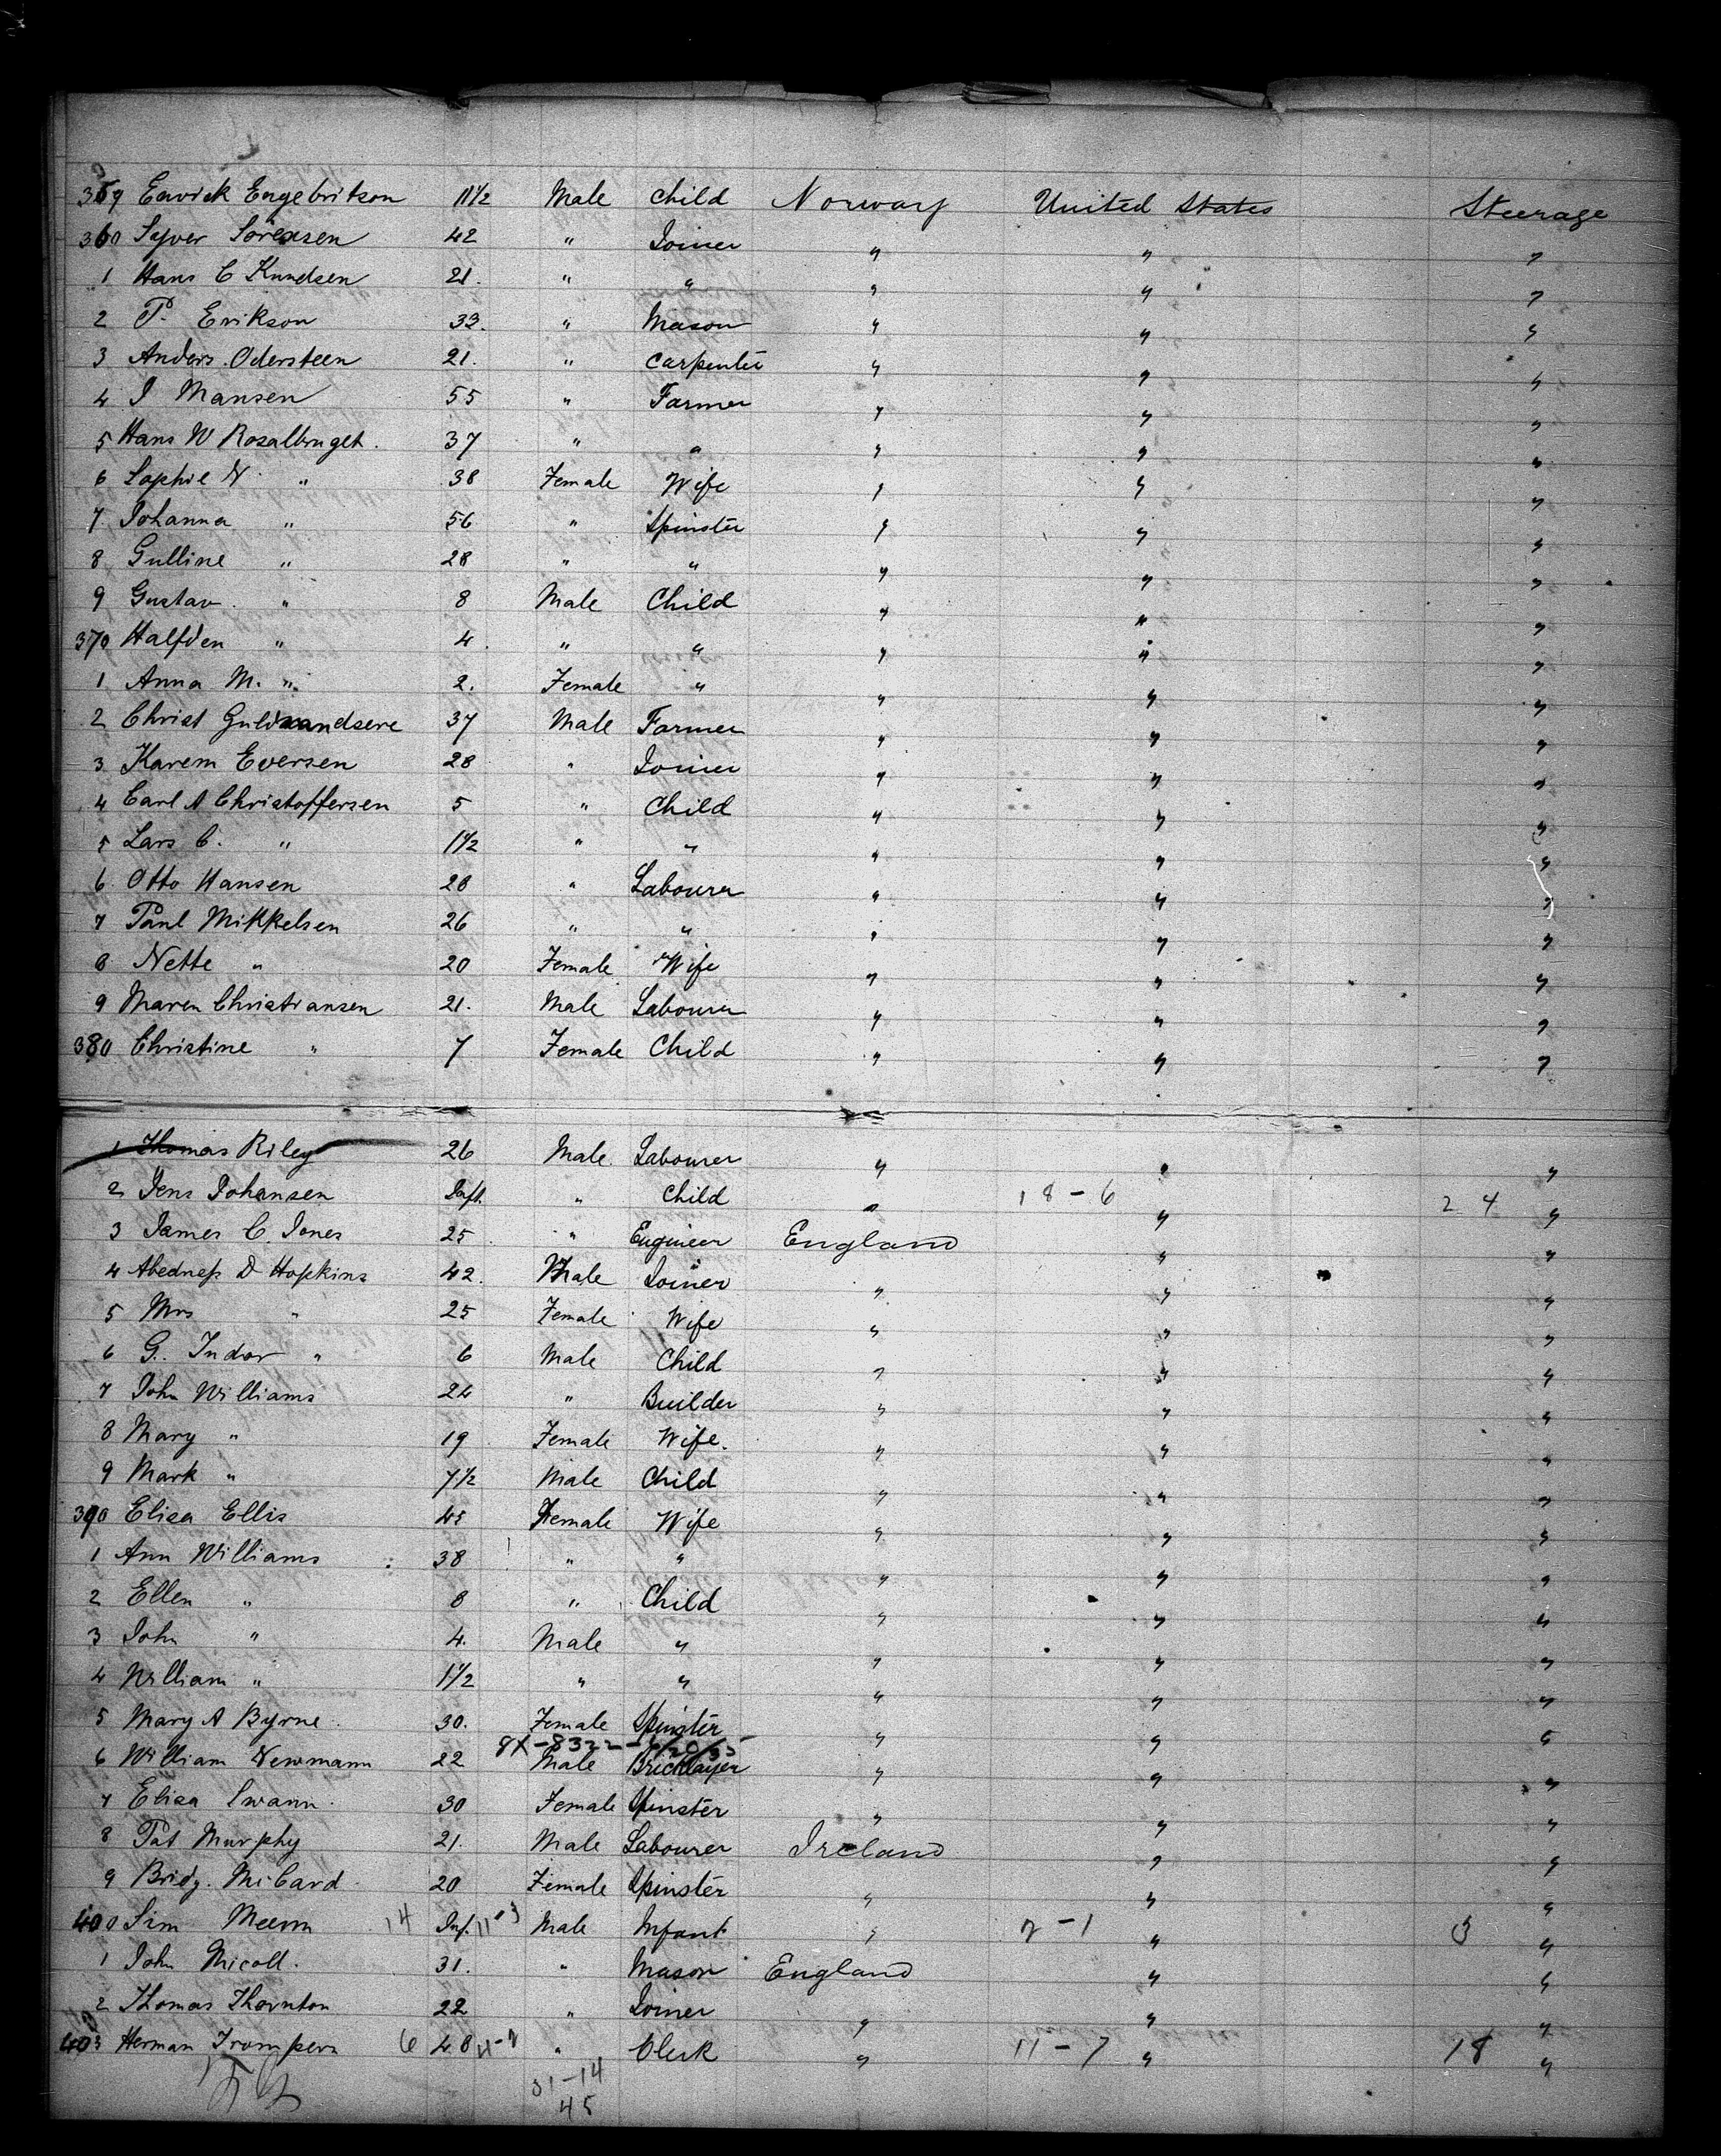 359 Eavick Engebritson 11½ Male Child Norway United States Steerage
360 Syver Sorensen 42 " Joiner " " "
1 Hans C Knudsen 21. " " " " "
2 P. Erikson 33. " Mason " " "
3 Anders. Odersteen 21. " Carpenter " " "
4 J Mansen 55 " Farmer " " "
5 Hans W Rosalbruget. 37 " " " " "
6 Sophie N. " 38 Female Wife " " "
7 Johanna " 56 " Spinster " " "
8 Gulline " 28 " " " " "
9 Gustav. " 8 Male Child " " "
370 Halfden " 4. " " " " "
1 Anna M. " 2. Female " " " "
2 Christ 37 Male Farmer " " "
3 Karem Eversen 28 " Joiner " " "
4 Carl A Christoffersen 5 " Child " " "
5 Lars C. " 1½ " " " " "
6. Otto Hansen 28 " Labourer " " "
7 Paul Mikkelsen 26 " " " " "
8 Nette " 20 Female Wife " " "
9 Maren Christiansen 21. Male Labourer " " "
380 Christine " 7 Female Child " " "
1 Thomas Riley 26 Male. Labourer " " "
2 Jens Johansen Inft. " Child " 18-6 " 24 "
3 James C. Jones 25 " Engineer England " "
4 D Hopkins 42. Male Joiner " " "
5 Mrs " 25 Female Wife " " "
6 G. Indor " 6 Male Child " " "
7 John Williams 24 " Builder " " "
8 Mary " 19 Female Wife. " " "
9 Mark " 7½ Male Child " " "
390 Elisa Ellis 45 Female Wife " " "
1 Ann Williams 38 " " " " "
2 Ellen " 8 " Child " " "
3 John " 4. Male " " " "
4 William " 1½ " " " " "
5 Mary A Byrne 30. Female Spinster " " "
8X-8322-6/20/35
6 William Newmann 22 Male Bricklayer " " "
7 Elisa Swann. 30 Female Spinster " " "
8 Pat Murphy 21. Male Labourer Ireland " "
9 Bridg. McCard 20 Female Spinster " " "
400 Sim 14 Inf. 11-3 Male Infant " 2-1 " 3 "
1 John Nicoll. 31. " Mason England " "
2 Thomas Thornton 22 " Joiner " " "
403 Herman 6 48 " Clerk " 11-7 " 18 "
31-14
45